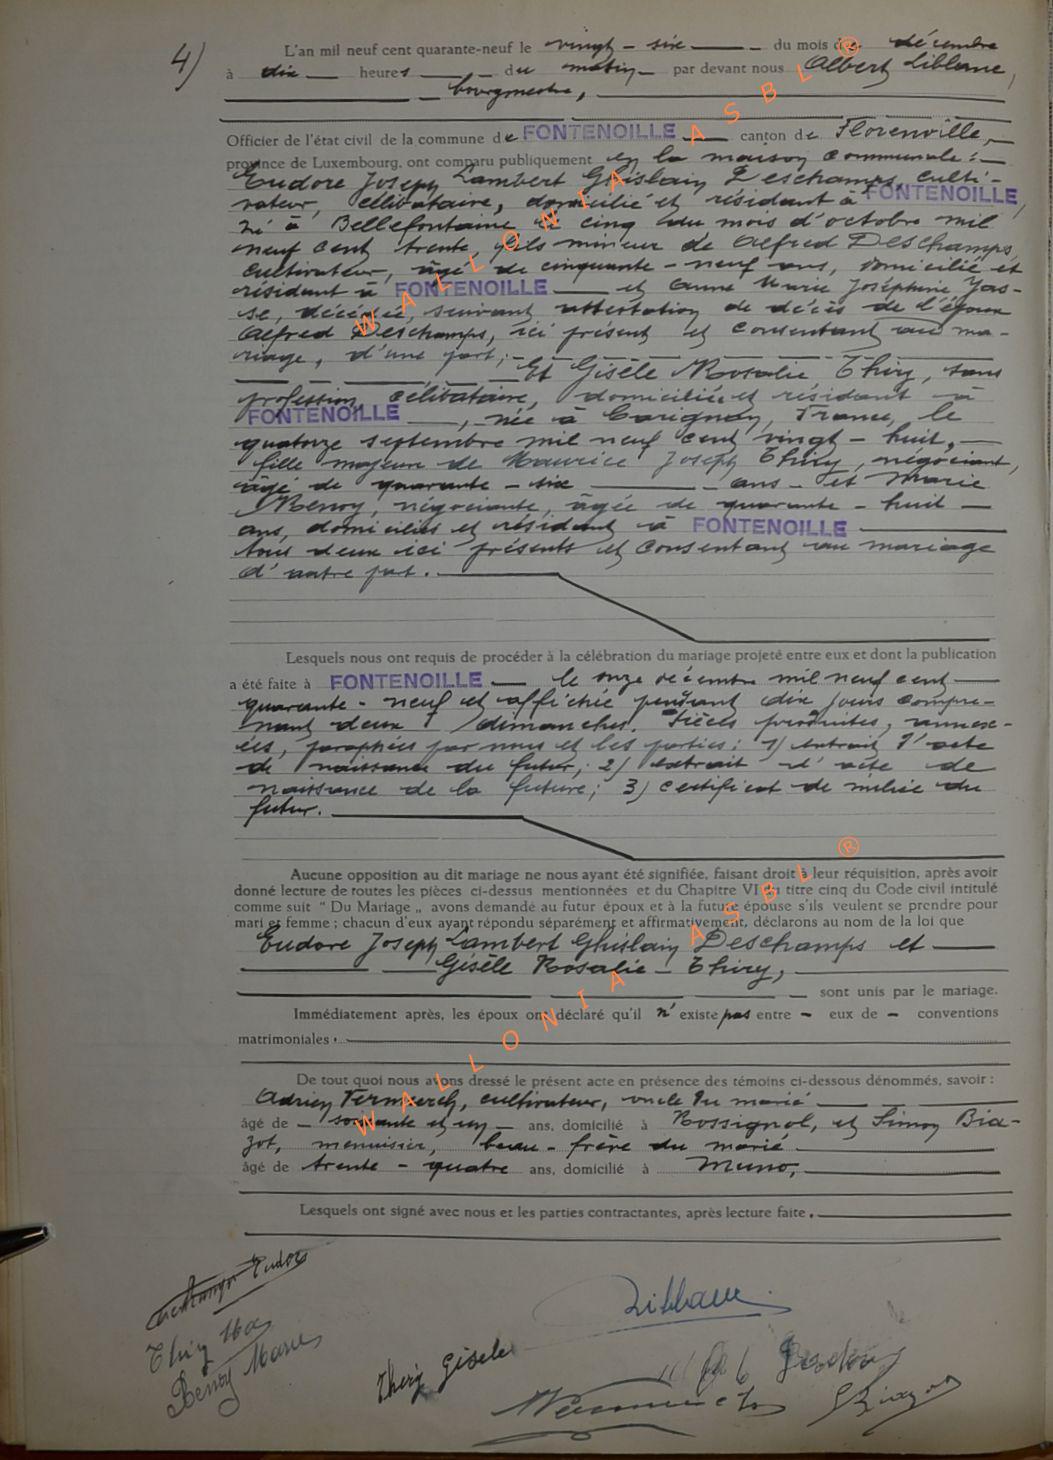 4)
L'an mil neuf cent quarante-neuf le vingt-six du mois de décembre
à dix heures du matin par devant nous Albert Liblanc,
bourgmestre,
Officier de l'état civil de la commune de FONTENOILLE canton de Florenville,
province de Luxembourg, ont comparu publiquement en la maison communale :
Eudore Joseph Lambert Ghislain Deschamps, culti-
vateur, célibataire, domicilié et résidant à FONTENOILLE,
né à Bellefontaine le cinq du mois d'octobre mil
neuf cent trente, fils mineur de Alfred Deschamps,
cultivateur, âgé de cinquante-neuf ans, domicilié et
résidant à FONTENOILLE et Anne Marie Joséphine Jas-
se, décédée, suivant attestation de décès de l'époux
Alfred Deschamps, ici présent et consentant au ma-
riage, d'une part;
Et Gisèle Rosalie Thiry, sans
profession, célibataire, domiciliée et résidant à
FONTENOILLE, née à Carignan, France, le
quatorze septembre mil neuf cent vingt-huit,
fille majeure de Maurice Joseph Thiry, négociant,
âgé de quarante-six ans et Marie
Benoy, négociante, âgée de quarante-huit
ans, domiciliés et résidant à FONTENOILLE
tous deux ici présents et consentant au mariage
d'autre part.
Lesquels nous ont requis de procéder à la célébration du mariage projeté entre eux et dont la publication
a été faite à FONTENOILLE le onze décembre mil neuf cent
quarante-neuf et affichée pendant dix jours compre-
nant deux dimanches. Pièces produites, annex-
ées, paraphées par nous et les parties : 1) extrait d'acte
de naissance du futur; 2) extrait d'acte de
naissance de la future; 3) certificat de milice du
futur.
Aucune opposition au dit mariage ne nous ayant été signifiée, faisant droit à leur réquisition, après avoir
donné lecture de toutes les pièces ci-dessus mentionnées et du Chapitre VI du titre cinq du Code civil intitulé
comme suit " Du Mariage „ avons demandé au futur époux et à la future épouse s'ils veulent se prendre pour
mari et femme ; chacun d'eux ayant répondu séparément et affirmativement, déclarons au nom de la loi que
Eudore Joseph Lambert Ghislain Deschamps et
Gisèle Rosalie Thiry,
sont unis par le mariage.
Immédiatement après, les époux ont déclaré qu'il n'existe pas entre - eux de - conventions
matrimoniales.
De tout quoi nous avons dressé le présent acte en présence des témoins ci-dessous dénommés, savoir :
Adrien cultivateur, oncle du marié
âgé de soixante et un ans, domicilié à Rossignol, et Simon Bia-
zot, menuisier, beau-frère du marié
âgé de trente-quatre ans, domicilié à Muno,
Lesquels ont signé avec nous et les parties contractantes, après lecture faite.
Deschamps Eudore
Liblanc
Thiry
Benoy Marie
Thiry Gisèle
WALLONIA ASBL ®
WALLONIA ASBL ®